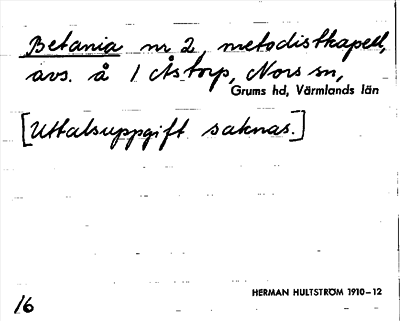 Betania nr 2, metodistkapell,
avs. å 1 Åstorp, Nors sn,
Grums hd, Värmlands län
[Uttalsuppgift saknas.]
HERMAN HULTSTRÖM 1910–12
16